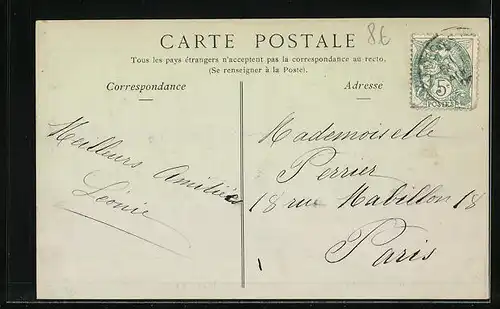 CARTE POSTALE
8€
Tous les pays étrangers n'acceptent pas la correspondance au recto.
(Se renseigner à la Poste).
Correspondance
Adresse
5c
POSTES
Meilleurs Amitiés
Léonie
Mademoiselle
Perrier
18 rue Mabillon 18
Paris